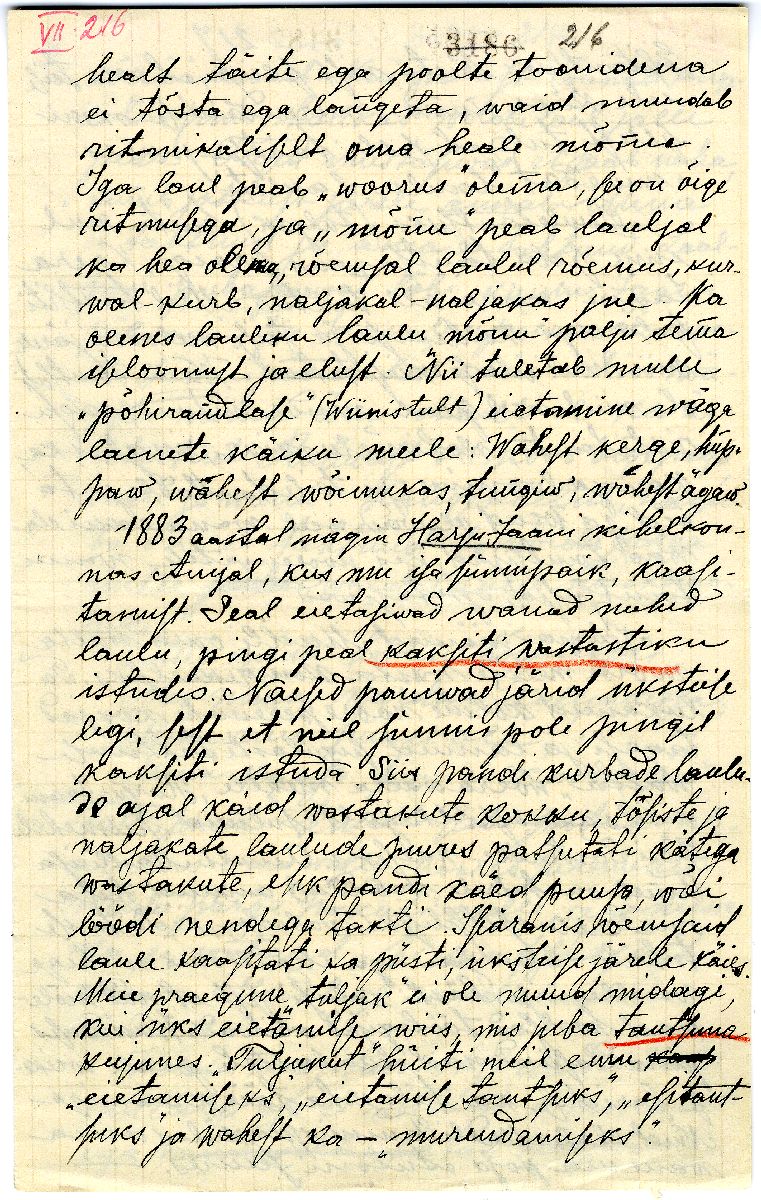 VII 216
3186 216
healt täite ega poolte toonidena
ei tõsta ega lan̄geta, waid muudab
ritmikaliselt oma heale mõm̄u.
Iga laul peab „woorus" olema, se on õige
ritmusega, ja „mõnu" peab lauljal
ka hea olema, rõemsal laulul rõemus, kur-
wal-kurb, naljakal-naljakas jne. Ka
olenes lauliku laulu mõnu palju tema
iseloomust ja elust. Nii tuletab mulle
„põhirandlase" (Wiinistult) eietamine wäga
laenete käiku meele: Wahest kerge, hüp-
paw, wahest wõimukas, tun̄giw, wahest ägaw.
1883 aastal nägin Harju-Jaani kihelkon-
nas Anijal, kus mu isa sünnipaik, kaasi-
tamist. Seal eietasiwad wanad mehed
laulu, pingi peal kaksiti wastastiku
istudes. Naesed panniwad järid üksteise
ligi, sest et neil sünnis pole pingil
kaksiti istuda. Siis pandi kurbade laulu-
de ajal käed wastakute kokku, tõsiste ja
naljakate laulude juures patsutati kätega
wastakute, ehk pandi käed puusa, wõi
löödi nendega takti. Iseäranis rõemsaid
laule kaasitati ka püsti, üksteise järele käies.
Meie praegune „tuljak" ei ole muud midagi,
kui üks eietamise wiis, mis juba tantsuna
kujunes. „Tuljakut" hüiti meil enne
„eietamiseks", „eietamise tantsuks", „esitant-
suks" ja wahest ka – „murendamiseks".